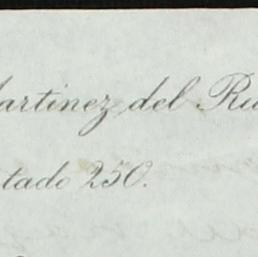 artinez del Ru
tado 250.